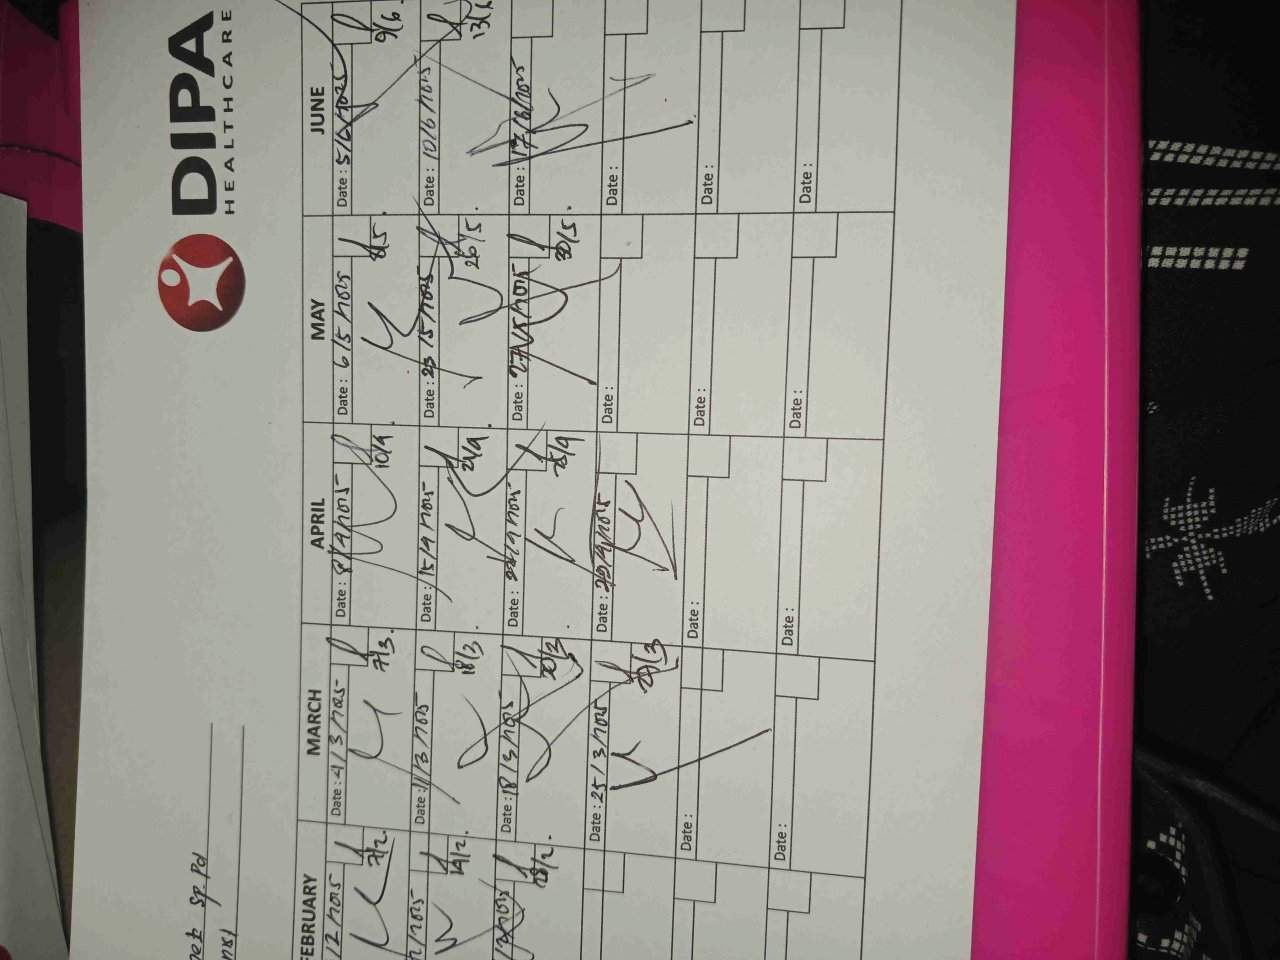 DIPA
HEALTHCARE
Sp. Pd
FEBRUARY MARCH APRIL MAY JUNE
Date : 4/3/2025 Date : 8/4/2025 Date : 6/5/2025 Date : 5/6/2025
7/2 7/3. 10/4 8/5. 9/6.
Date : 11/3/2025 Date : 15/4/2025 Date : 23/5/2025 Date : 10/6/2025
14/2. 18/3. 24/4. 26/5. 13/6
Date : 18/3/2025 Date : 22/4/2025 Date : 27/5/2025 Date : 17/6/2025
18/2. 20/3 25/4 30/5.
Date : 25/3/2025 Date : 29/4/2025 Date : Date :
27/3
Date : Date : Date : Date :
Date : Date : Date : Date :